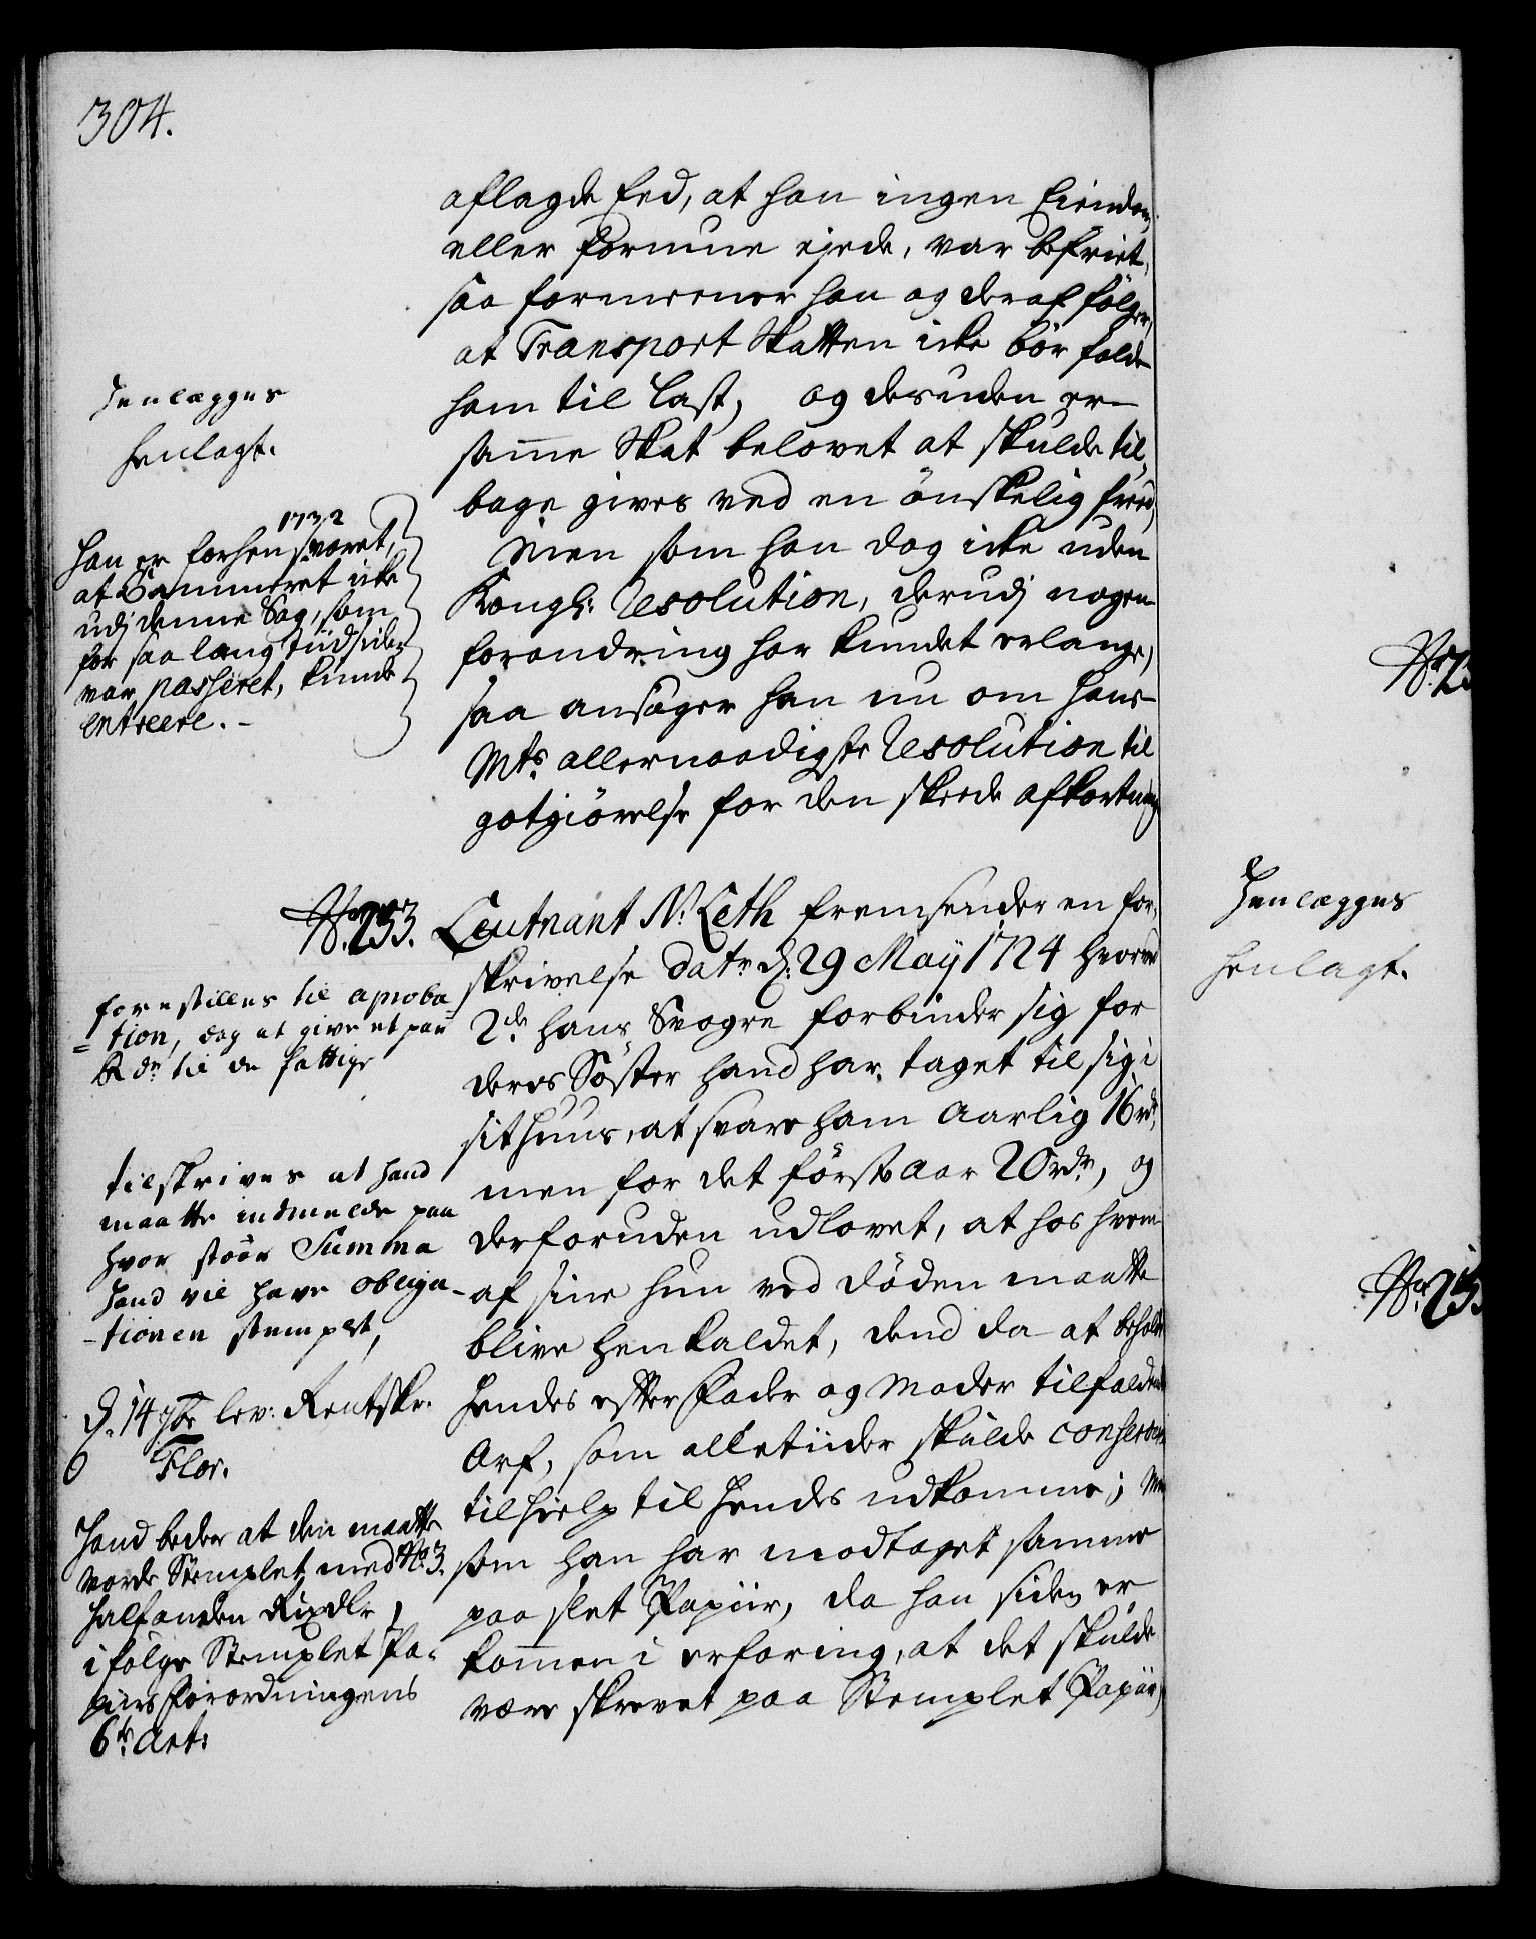 304.
aflagde Eed, at han ingen Eiendom
eller formue ejede, var befriet,
saa formeener han og deraf fölger,
at Transport Skatten icke bör falde
ham til last, og desuden er
samme Skat belovet at skulde til,,
bage gives ved en önskelig freed,
Men som han dog icke uden
Kongl: Resolution, derudj nogen
forandring har kundet erlange,
saa ansöger han nu om Hans
Mts. allernaadigste Resolution til
gotgiörelse for den skeede afkortning
Henlægges
henlagt.
1732
Han er forhen svaret,
at Cammeret icke
udj denne Sag, som
for saa lang tiid siden
var passeret, kunde
entreere.
No. 253.
Leutnant N. Leth fremsender en for,,
skrivelse dat. d: 29 Maij 1724 hvorved
2de hans Svogre forbinder sig for
deres Söster hand har taget til sig i
sit huus, at svare ham Aarlig 16 rdr,
men for det förste Aar 20 rdr, og
derforuden udlovet, at hos hvem
af sine hun ved döden maatte
blive henkaldet, dend da at beholde
hendes efter Fader og Moder tilfaldne
Arf, som alletiider skulde conserveres
til hielp til hendes udkomme; Men
som han har modtaget samme
paa slet Papiir, da han siden er
kommen i erfaring, at det skulde
være skrevet paa Stemplet Papiir,
forestilles til aproba
=tion, dog at give et par
Rdr til de fattige
tilskrives at hand
maatte indmelde paa
hvor stoor Summa
hand vil have obliga-
-tionen stemplet,
d. 14 7br lev: Rentskr.
Flor.
Hand beder at den maatte
vorde Stemplet med No. 3.
halfanden Rixdlr,
i fölge Stemplet Pa=
piirs Forordningens
6te Art:
No. 25
Henlægges
henlagt.
No. 25